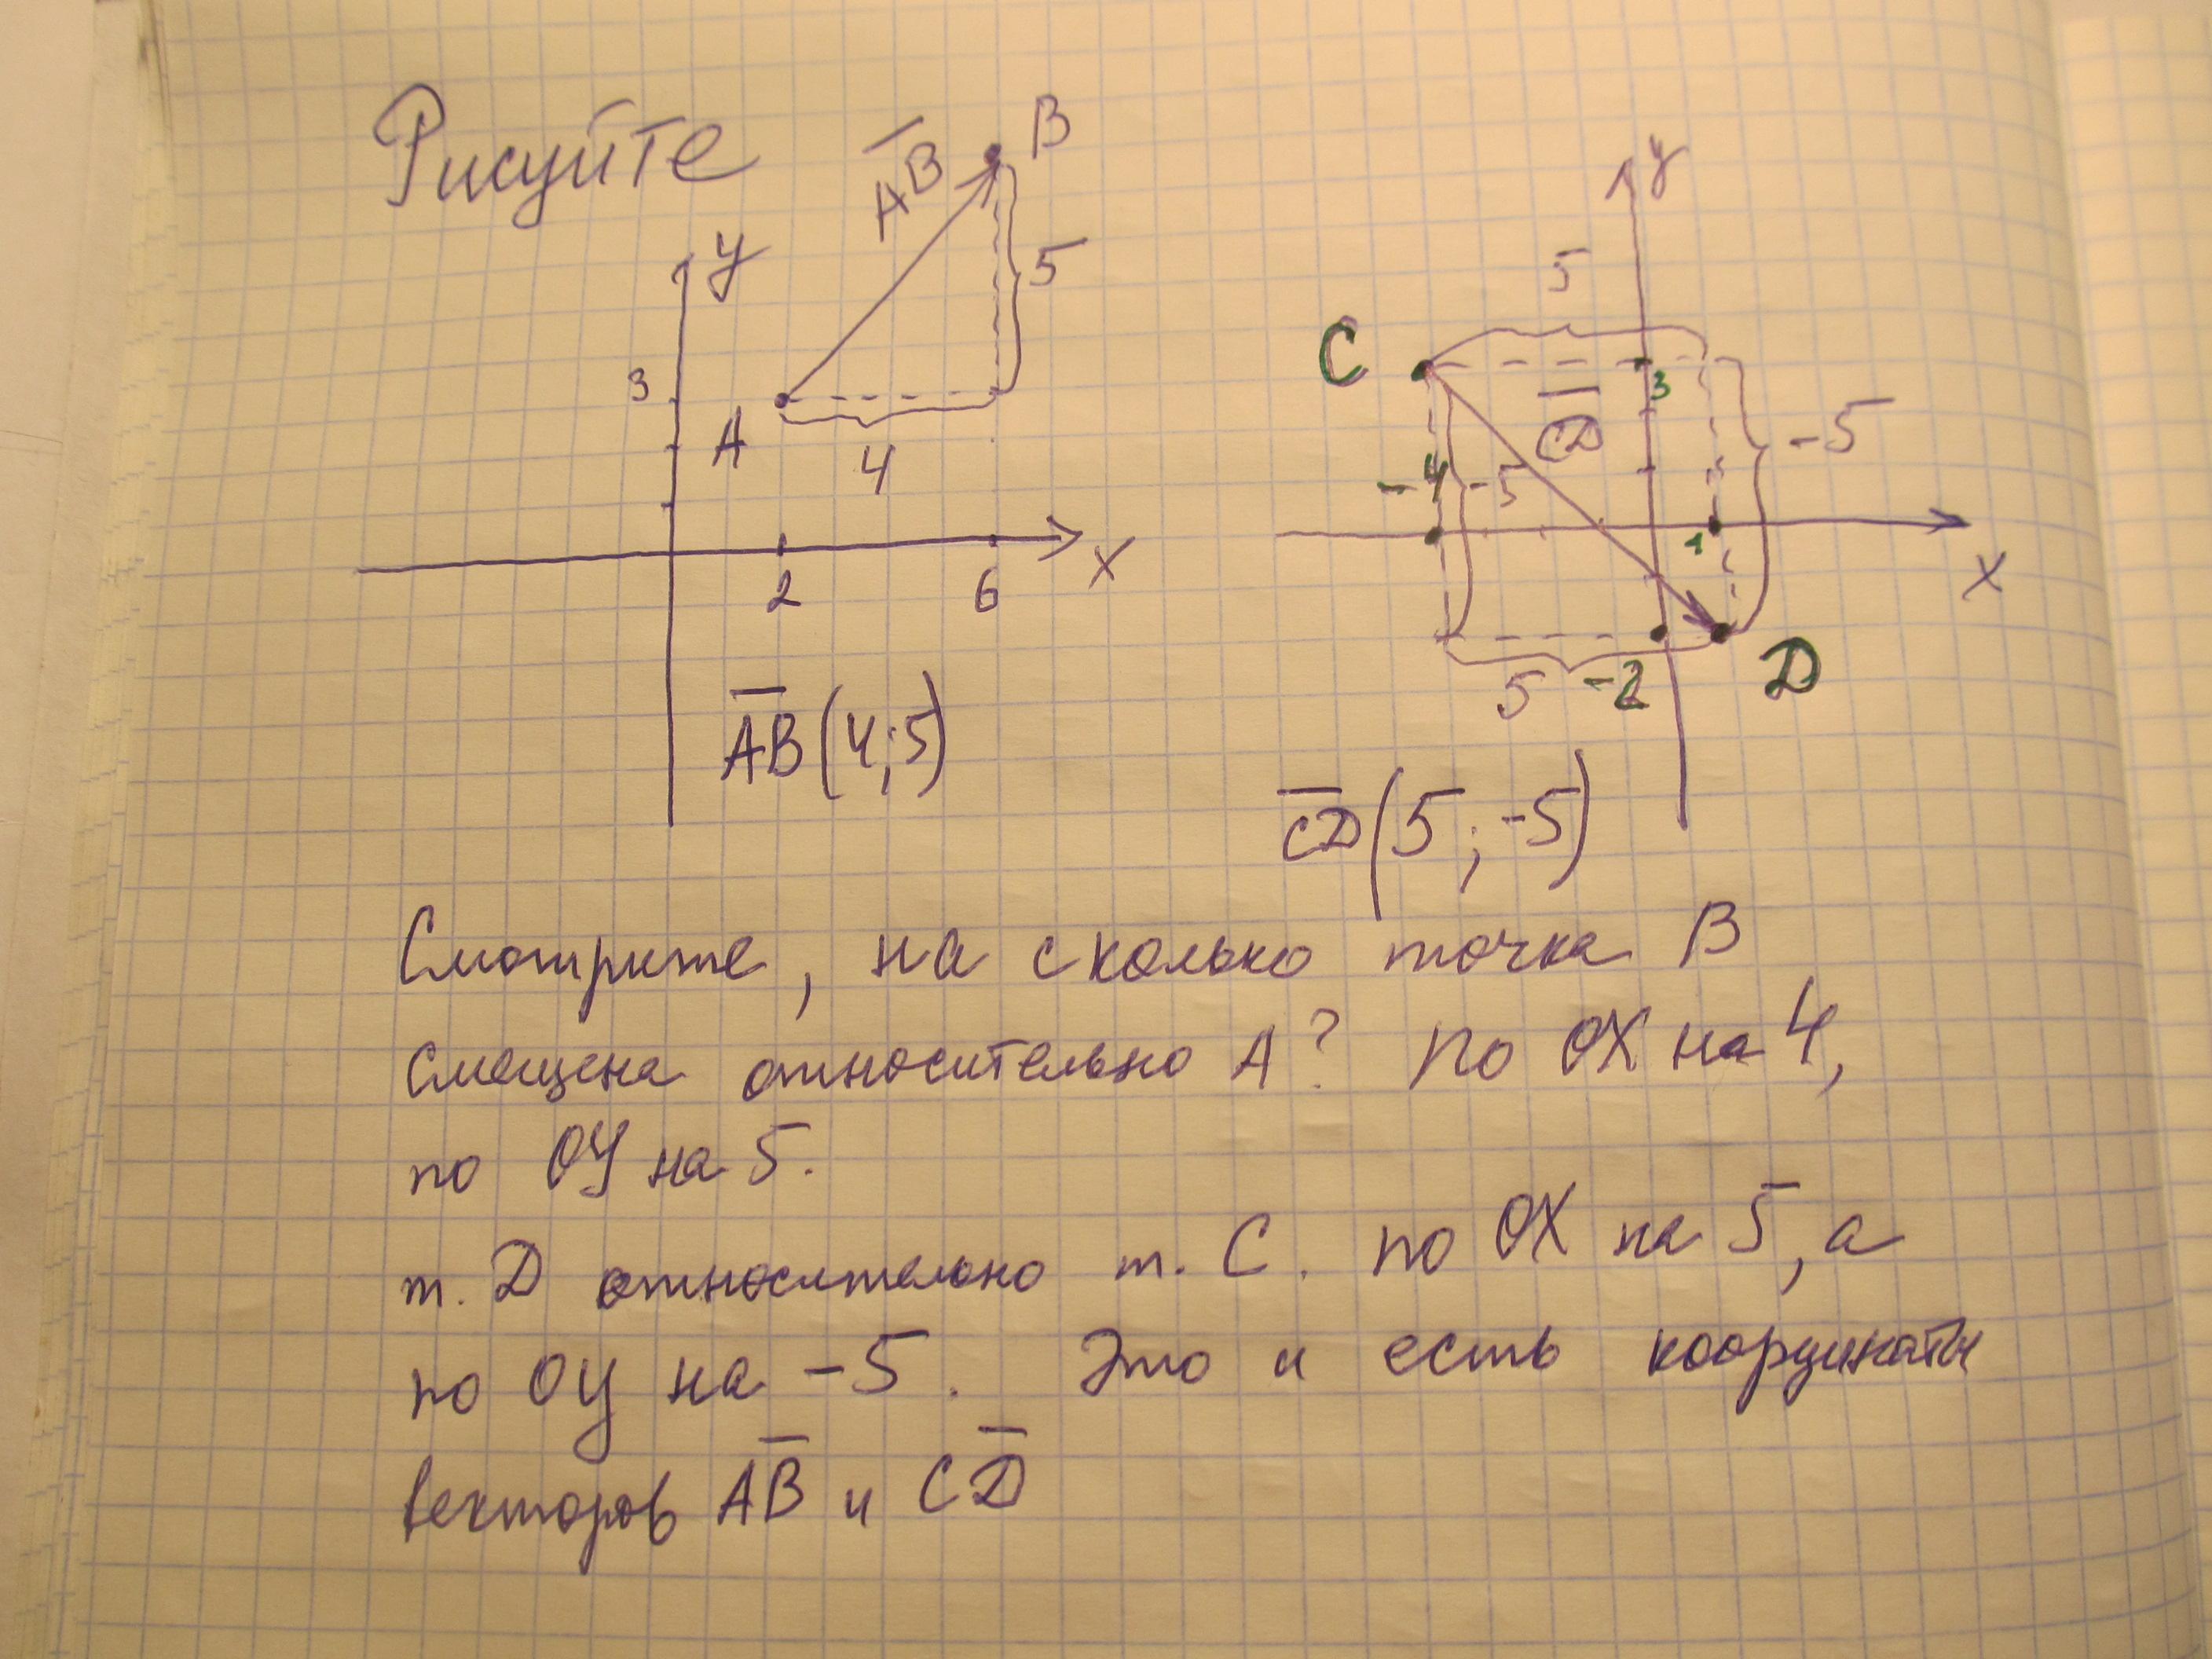 Рисуйте
AB
B
y
5
3
A
4
2
6
x
AB(4;5)
y
5
C
3
CD
-5
-4
-5
1
x
D
5
-2
CD(5;-5)
Смотрите, на сколько точка B
смещена относительно A? По OX на 4,
по OY на 5.
т. D относительно т. C. по OX на 5, а
по OY на -5. Это и есть координаты
векторов AB и CD